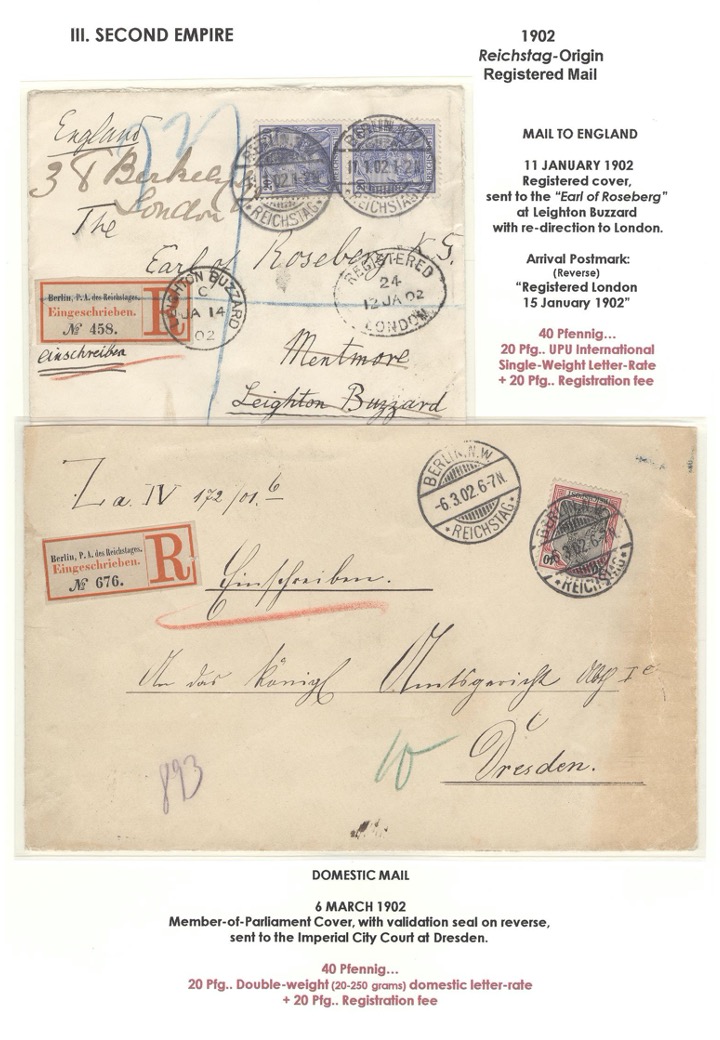 III. SECOND EMPIRE
1902
Reichstag-Origin
Registered Mail
MAIL TO ENGLAND
11 JANUARY 1902
Registered cover,
sent to the “Earl of Roseberg”
at Leighton Buzzard
with re-direction to London.
Arrival Postmark:
(Reverse)
“Registered London
15 January 1902”
40 Pfennig…
20 Pfg.. UPU International
Single-Weight Letter-Rate
+ 20 Pfg.. Registration fee
England
38 Berkeley
London
The
Earl of Rosebery K.G.
Mentmore
Leighton Buzzard
BERLIN. N.W
11.1.02.1-2N.
* REICHSTAG *
BERLIN. N.W
11.1.02.1-2N.
* REICHSTAG *
REGISTERED
24
12 JA 02
LONDON
LEIGHTON BUZZARD
C
JA 14
02
Berlin, P. A. des Reichstages.
Eingeschrieben.
№ 458.
R
einschreiben
Za. IV 172/01. 6
BERLIN. N.W
-6.3.02.6-7N.
* REICHSTAG *
BERLIN. N.W
* REICHSTAG *
Berlin, P. A. des Reichstages.
Eingeschrieben.
№ 676.
R
Einschreiben.
An das Königl Amtsgericht Abth I c
Dresden.
893
10
DOMESTIC MAIL
6 MARCH 1902
Member-of-Parliament Cover, with validation seal on reverse,
sent to the Imperial City Court at Dresden.
40 Pfennig…
20 Pfg.. Double-weight (20-250 grams) domestic letter-rate
+ 20 Pfg.. Registration fee